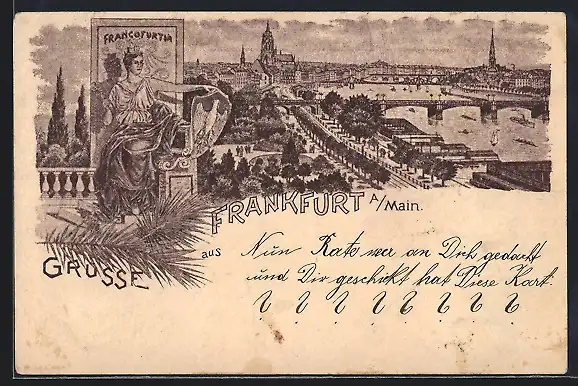 FRANCOFURTIA
FRANKFURT A/Main.
GRÜSSE aus
Nun Rate wer an Dich gedacht
und Dir geschikt hat Diese Kart.
? ? ? ? ? ? ? ?